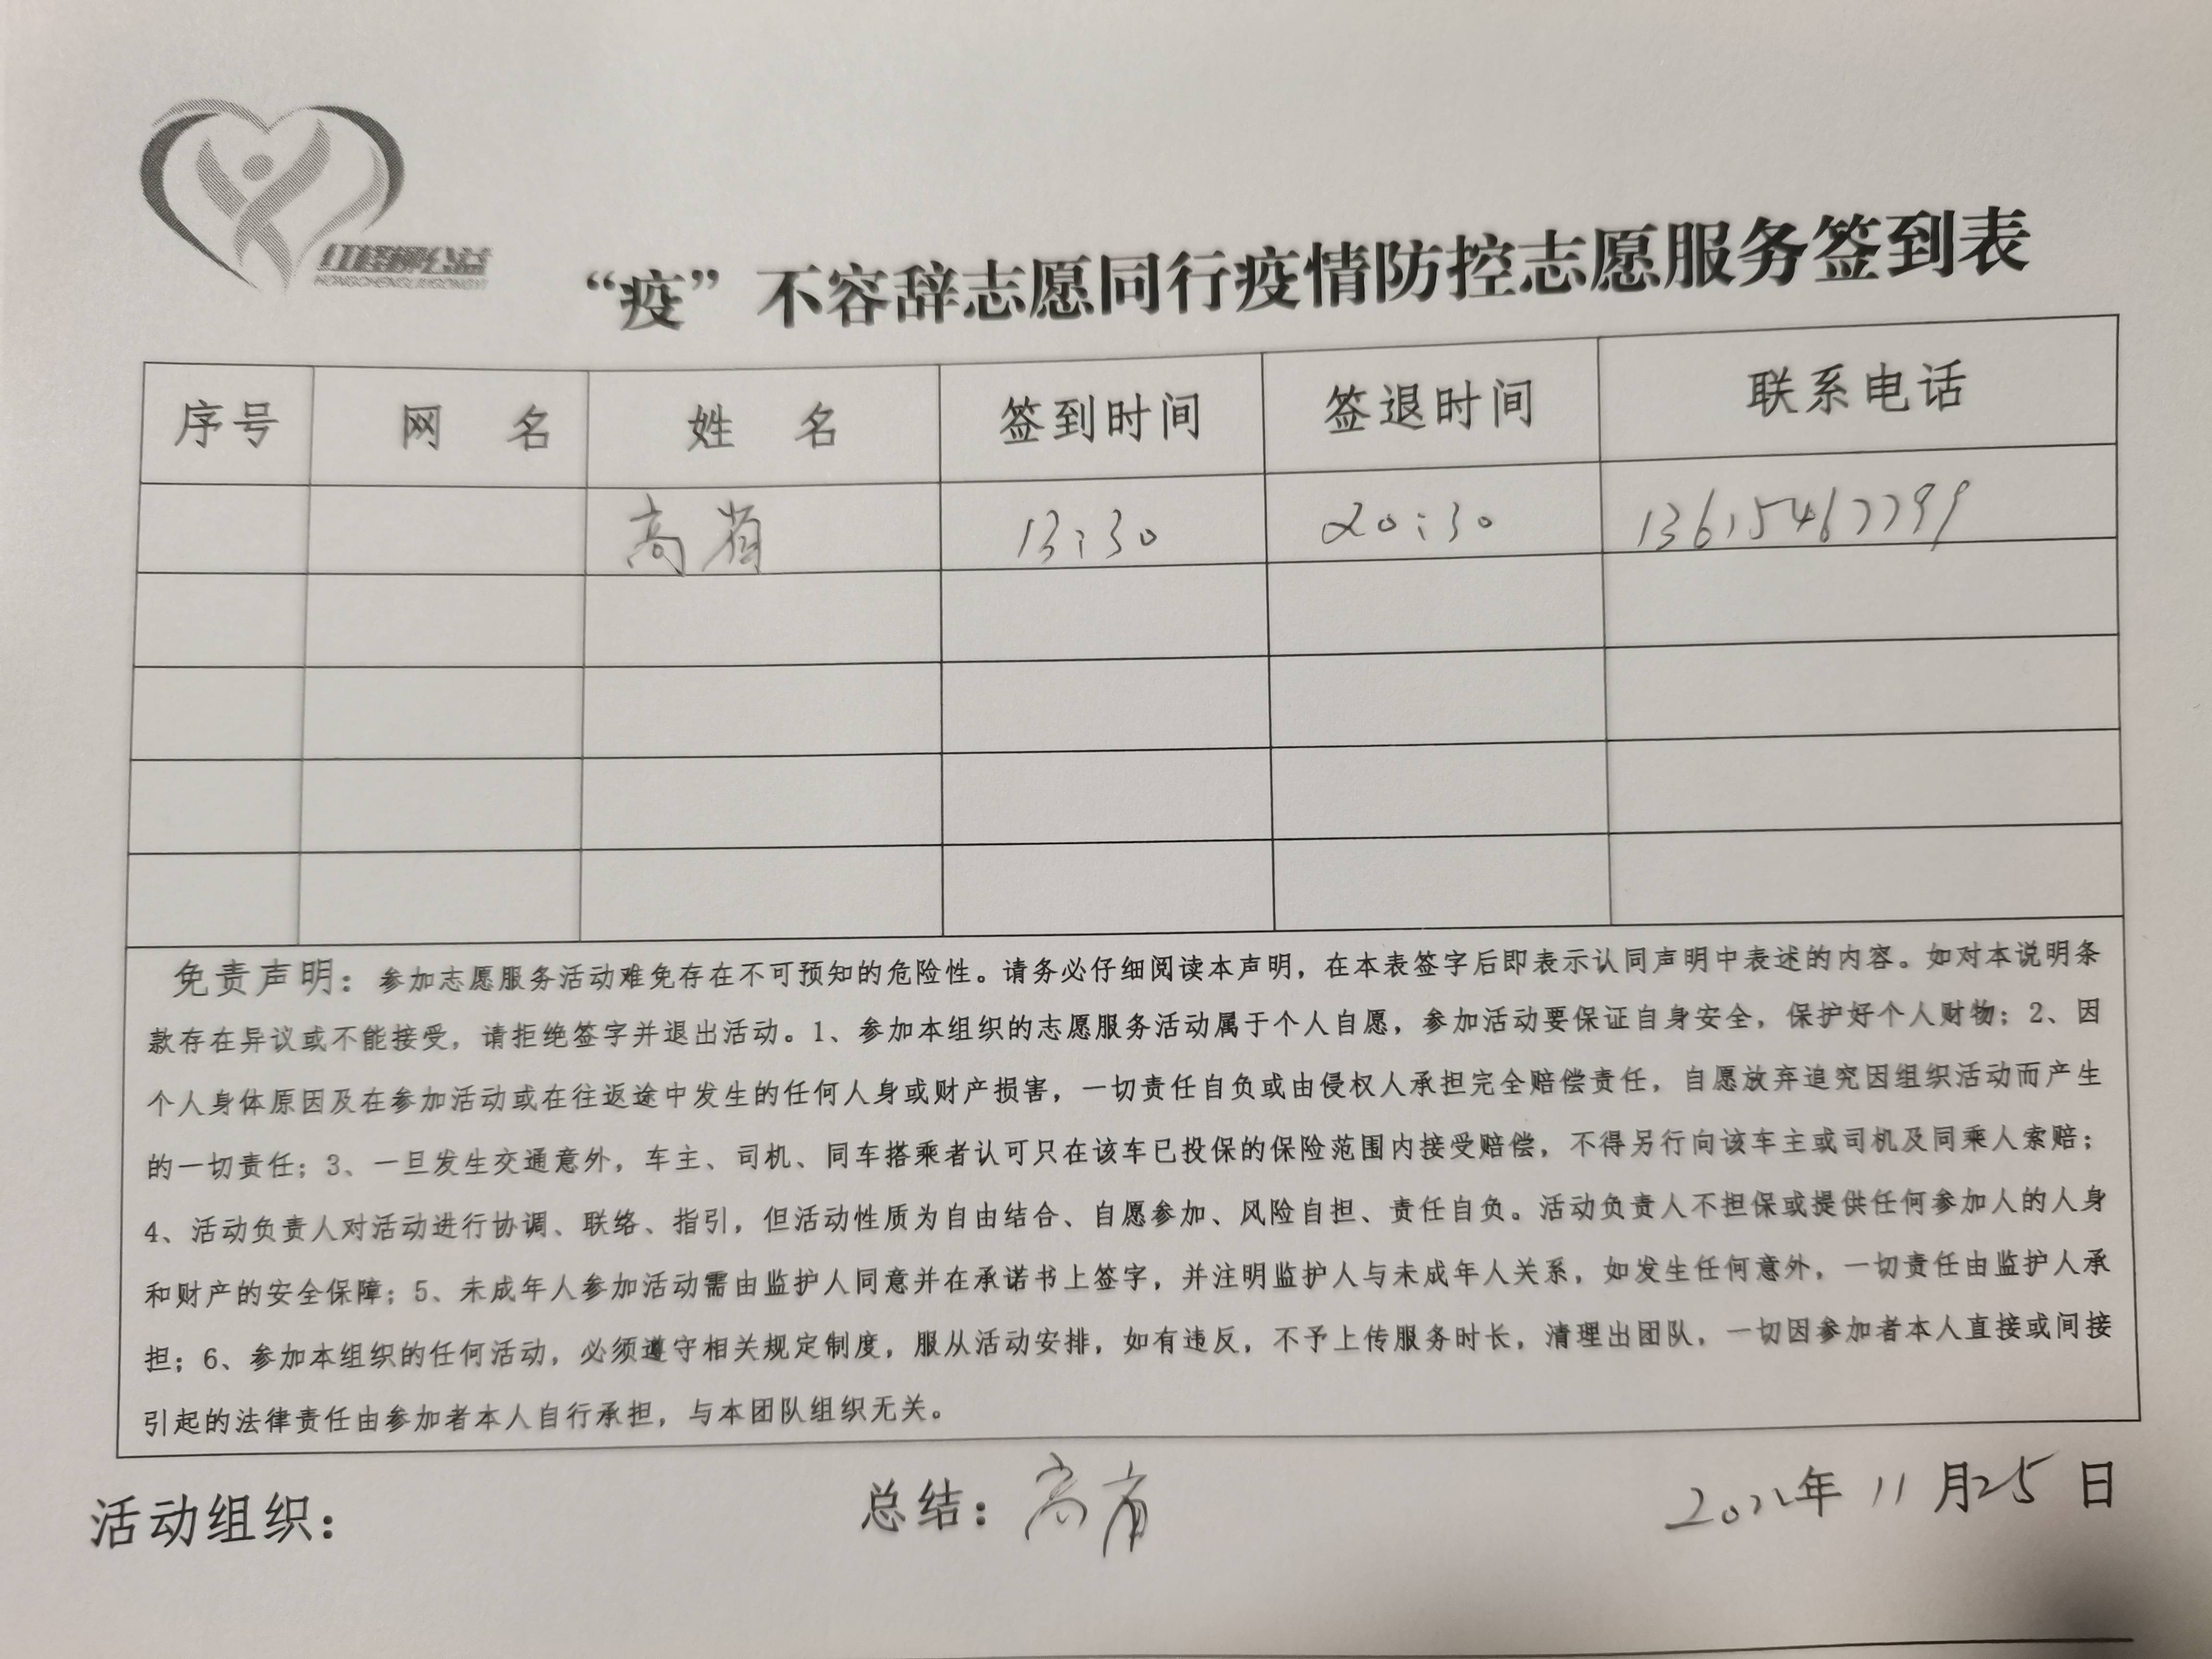 红柽柳公益
HONGCHENGLIUGONGYI
“疫”不容辞志愿同行疫情防控志愿服务签到表
序号 网 名 姓 名 签到时间 签退时间 联系电话
高 13:30 20:30 13615467799
免责声明：参加志愿服务活动难免存在不可预知的危险性。请务必仔细阅读本声明，在本表签字后即表示认同声明中表述的内容。如对本说明条
款存在异议或不能接受，请拒绝签字并退出活动。1、参加本组织的志愿服务活动属于个人自愿，参加活动要保证自身安全，保护好个人财物；2、因
个人身体原因及在参加活动或在往返途中发生的任何人身或财产损害，一切责任自负或由侵权人承担完全赔偿责任，自愿放弃追究因组织活动而产生
的一切责任；3、一旦发生交通意外，车主、司机、同车搭乘者认可只在该车已投保的保险范围内接受赔偿，不得另行向该车主或司机及同乘人索赔；
4、活动负责人对活动进行协调、联络、指引，但活动性质为自由结合、自愿参加、风险自担、责任自负。活动负责人不担保或提供任何参加人的人身
和财产的安全保障；5、未成年人参加活动需由监护人同意并在承诺书上签字，并注明监护人与未成年人关系，如发生任何意外，一切责任由监护人承
担；6、参加本组织的任何活动，必须遵守相关规定制度，服从活动安排，如有违反，不予上传服务时长，清理出团队，一切因参加者本人直接或间接
引起的法律责任由参加者本人自行承担，与本团队组织无关。
活动组织： 总结：高 年 11 月 25 日